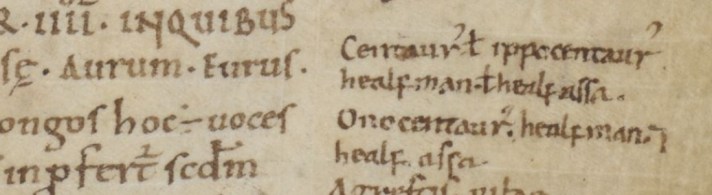 R·IIII· INQUIBUS
sę· Aurum· Eurus·
ongos hoc ÷ uoces
inpfert̄ scd̄m
Centaur᾽ ł ippocentaur᾽
healf man ł healf assa.
Onocentaur᾽. healf man. ⁊
healf assa.